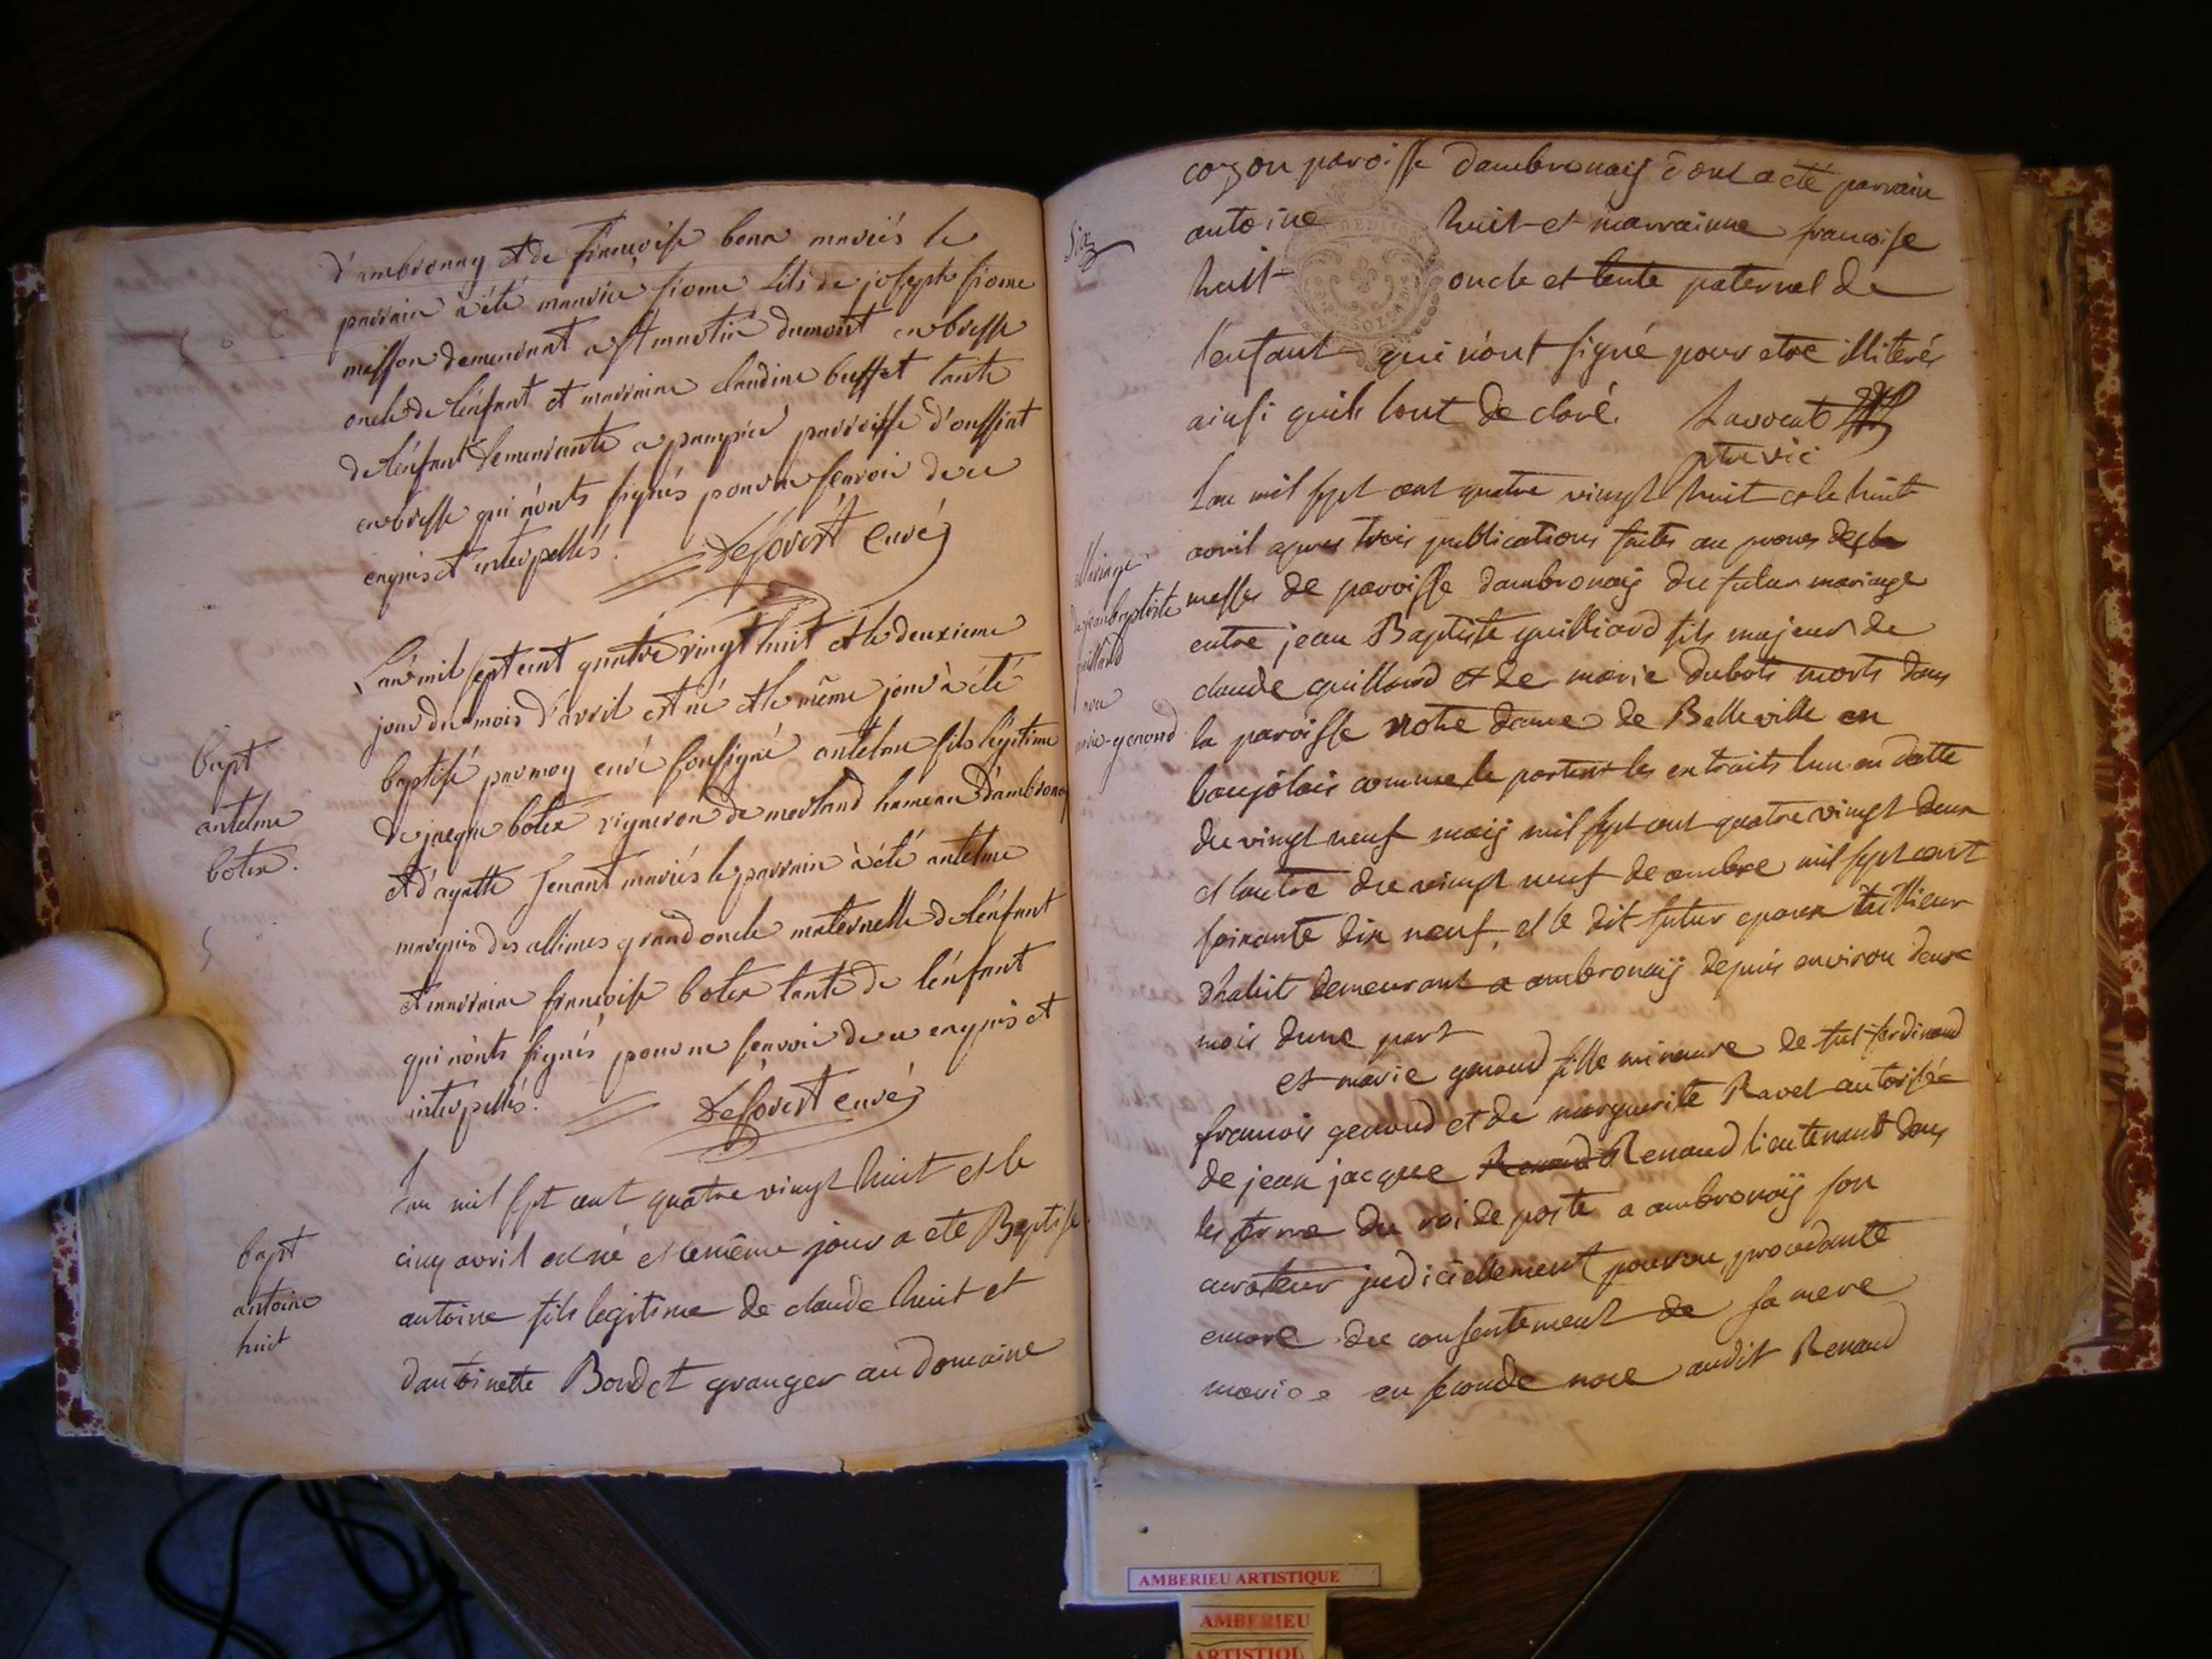 d'ambronay et de françoise bonn mariés le
parrain à été maurice fiome fils de joseph fiome
masson demeurant a st martin dumont en bresse
oncle de l'énfant et marraine claudine buffet tante
de l'énfant demeurante a parroisse d'oussiat
en bresse qui n'onts signés pour ne scavoir de ce
enquis et interpellés. Deforest curé
L'an mil sept cent quatre vingt huit et le deuxieme
jour du mois d'avril est né et le même jour à été
bapt
antelme
botex.
baptisé par moy curé soussigné antelme fils légitime
de jacque botex vigneron de merland hameau d'ambronay
et d'agathe jenant mariés le parrain à été antelme
marquis des allimes grand oncle maternelle de l'énfant
et marraine françoise botex tante de l'énfant
qui n'onts signés pour ne scavoir de ce enquis et
interpellés. Deforest curé
bapt
antoine
huit
L'an mil sept cent quatre vingt huit et le
cinq avril est né et le même jour a ete Baptisé
antoine fils legitime de claude huit et
dantoinette Bondet granger au domaine
Six
cozon paroisse dambronaij dont a été parrain
antoine huit et marrainne francoise
huit oncle et tente paternel de
l'enfant qui n'ont signé pour etre illiterés
ainsi quils lont declaré. Lavocat
ptre vic
Mariage
de jean baptiste
guillard
avec
marie genoud
Lan mil sept cent quatre vingt huit et le huit
avril apres trois publications faites au prones de la
messe de paroisse dambronaij du futur mariage
entre jean Baptiste guilliard fils majeur de
claude guillard et de marie dubots morts dans
la paroisse notre dame de Belleville en
baujolois comme le portent les extraits lun en datte
du vingt neuf maij mil sept cent quatre vingt deux
et lautre du vingt neuf decembre mil sept cent
soixante dix neuf, et le dit futur epoux taillieur
dhabits demeurant a ambronaij depuis environ deux
mois dune part
et marie genoud fille mineure de fut ferdinand
francois genoud et de marguerite Ravel autorisée
de jean jacque Renaud lieutenant dans
les ferme du roi de poste a ambronaij son
curateur judiciellement pourvu, procedante
encore du consentement de sa mere
mariee en seconde noce audit Renaud
AMBERIEU ARTISTIQUE
AMBERIEU